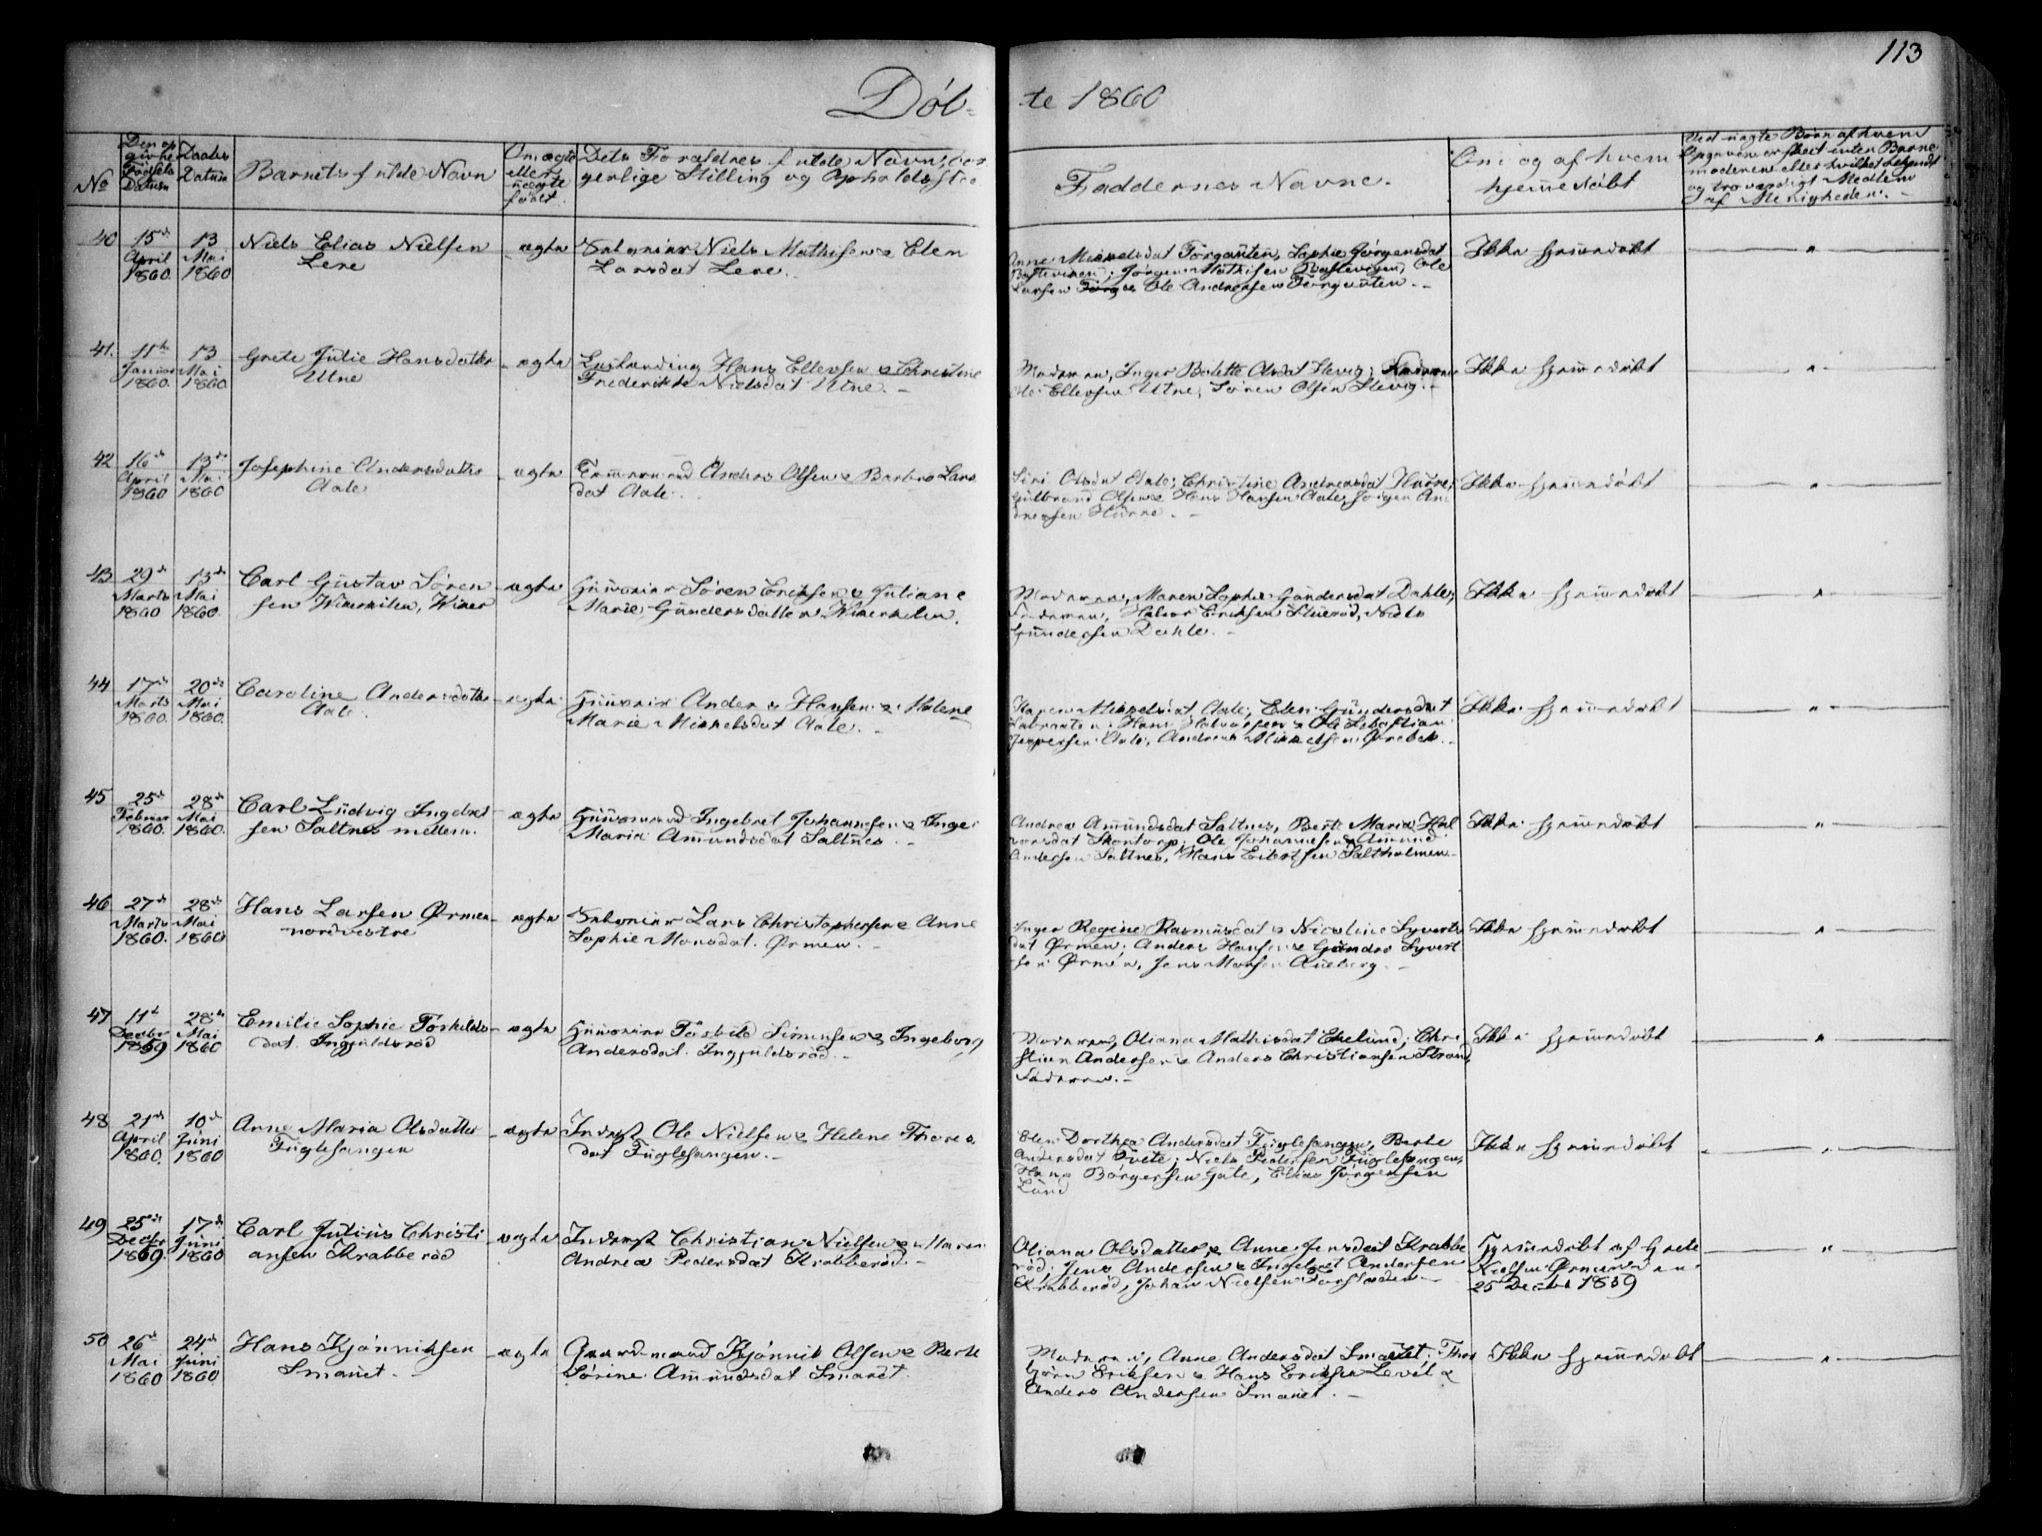 113
Döb- te 1860
No
Den op
givne
Födsels
Datum
Daabs
Datum
Barnets fulde Navn
Om ægte
eller
uægte
født.
Dets Forældres fulde Navn, bor
gerlige Stilling og Opholdsste
Faddernes Navne.
Om og af hvem
hjemedöbt
40 15de April 1860. 13 Mai 1860
Niels Elias Nielsen
Lere
ægte
Selveier Niels Mathisen & Elen
Larsdat Lere.
Anne Torgauten, Sophie Jörgensdat
Jörgen Mathisen Ole
Larsen Ole Andersen Torgauten.
Ikke hjemedöbt
41. 11te Januar 1860. 13 Mai 1860
Grete Julie Hansdatter
Utne
ægte
Hans Ellevsen & Christine
Frederikke Nielsdat Utne.
Moderen, Inger Olsdat Slevig;
Ole Ellevsen Utne, Sören Olsen Slevig.
Ikke hjemedöbt
42 16de April 1860 13de Mai 1860
Josephine Andersdatter
Aale
ægte
Tömmermand Anders Olsen & Barbro Lars
dat Aale.
Siri Olsdat Aale; Christine Andreasdat Hurre;
Gulbrand Olsen & Hans Hansen Aale, Jörgen An
dreasen Hurre.
Ikke hjemedöbt
43 29de Marts 1860 13de Mai 1860.
Carl Gustav Sören
sen Wikerkilen, Wiker
ægte
Huusmand Sören Eriksen & Juliane
Marie Gundersdatter Wikerkilen.
Moderen, Maren Sophie Gundersdat Dahle;
Faderen, Halvor Eriksen Stueröd, Niels
Gundersen Dahle.
Ikke hjemedöbt
44 17de Marts 1860. 20de Mai 1860.
Caroline Andersdatter
Aale.
ægte
Anders Hansen & Malene
Marie Mikkelsdat Aale.
Karen Mikkelsdat Aale; Elen Gundersdat
Hans Halvorsen & Ole Sebastian
Jeppersen Aale, Andreas Mikkelsen Örebek.
Ikke hjemedöbt
45 25de Februar 1860. 28de Mai 1860.
Carl Ludvig Ingebret
sen Saltnes mellem.
ægte
Huusmand Ingebret Johannesen & Inger
Maria Amundsdat Saltnes.
Andrea Amundsdat Saltnes, Berte Maria Hal
vorsdat Skontorp; Ole Johannesen & Amund
Andersen Saltnes, Hans Eilertsen Saltholmen
Ikke hjemedöbt
46 27de Marts 1860. 28de Mai 1860
Hans Larsen Ørmen
nordvestre
ægte
Selveier Lars Christophersen & Anne
Sophie Monsdat. Ørmen.
Inger Regine Rasmusdat & Nicoline Syverts
dat Ørmen; Anders Hansen & Gundro Syvert
sen Ørmen, Jens Monsen Aueberg.
Ikke hjemedöbt
47 11te Decbr 1859 28de Mai 1860
Emilie Sophie Torkilds
dat. Ingjuldsröd
ægte
Torkild Simensen & Ingeborg
Andersdat. Ingjuldsröd.
Moderen, Oliana Mathisdat Ekelund; Chri
stian Andersen & Anders Christiansen Strand
Faderen.
Ikke hjemedöbt
48 21de April 1860. 10de Juni 1860
Anne Maria Olsdatter
Fuglesangen
ægte
Inderst Ole Nielsen & Helene Thores
dat Fuglesangen.
Elen Dorthea Andersdat Fuglesangen, Berte
Andersdat Tvete; Niels Pedersen Fuglesangen,
Hans Börgersen Gate, Elias Jörgensen
Lund
Ikke hjemedöbt
49 25de Decbr 1859. 17de Juni 1860
Carl Julius Christi
ansen Krabberöd
ægte
Inderst Christian Nielsen & Maren
Andrea Pedersdat Krabberöd.
Oliana Olsdatter & Anne Jensdat Krabbe
röd; Jens Andersen & Ingebret Andersen
Krabberöd, Johan Nielsen
Hjemedöbt af Grete
Nielsen Ørmen den
25 Decbr 1859
50 26de Mai 1860 24de Juni 1860
Hans Kjönniksen
Smauet.
ægte
Gaardmand Kjönnik Olsen & Berte
Sörine Amundsdat Smauet.
Moderen, Anne Andersdat Smauet; Thor
björn Eriksen & Hans Eriksen Levil &
Anders Andersen Smauet.
Ikke hjemedöbt